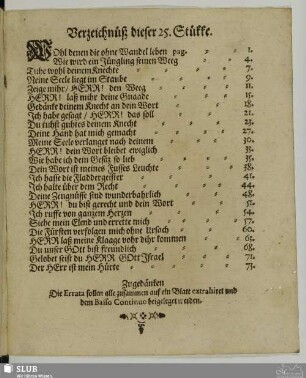 Verzeichnüß dieser 25. Stükke.
WOhl denen die ohne Wandel leben pag. 1.
Wie wird ein Jüngling seinen Weeg 4.
Tuhe wohl deinem Knechte 7.
Meine Seele liegt im Staube 9.
Zeige mihr/ HERR! den Weeg 11.
HERR! laß mihr deine Gnaade 15.
Gedänke deinem Knecht an dein Wort 18.
Ich habe gesagt / HERR! das soll 21.
Du tuhst guhtes deinem Knecht 23.
Deine Hand hat mich gemacht 27.
Meine Seele verlanget nach deinem 30.
HERR! dein Wort bleibet ewiglich 33.
Wie habe ich dein Gesäz so lieb 35.
Dein Wort ist meines Fusses Leuchte 38.
Ich hasse die Fladdergeister 41.
Ich halte über dem Recht 44.
Deine Zeugnüsse sind wunderbahrlich 48.
HERR! du bist gerecht und dein Wort 51.
Ich ruffe von ganzem Herzen 54.
Siehe mein Elend und errette mich 57.
Die Fürsten verfolgen mich ohne Ursach 60.
HERR laß meine Klaage vohr dihr kommen 65.
Du unser GOtt bist freundlich 68.
Gelobet seist du HERR GOtt Israel 71.
Der HErr ist mein Hürte 73.
Zugedänken
Die Errata sollen alle zusammen auf ein Blatt extrahiret und
dem Basso Continuo beigeleget werden.
SLUB
Wir führen Wissen.